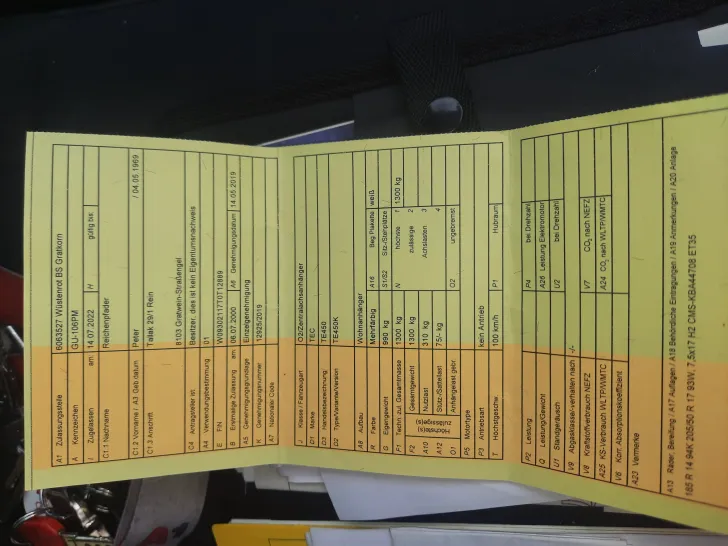 A1 Zulassungsstelle 6063527 Wüstenrot BS Gratkorn
A Kennzeichen GU-106PM
I Zugelassen am: 14.07.2022 H gültig bis:
C1.1 Nachname Reichenpfader
C1.2 Vorname / A3 Geb.datum Peter / 04.05.1969
C1.3 Anschrift Tallak 29/1 Rein
8103 Gratwein-Straßengel
C4 Antragsteller ist Besitzer, dies ist kein Eigentumsnachweis
A4 Verwendungsbestimmung 01
E FIN W09302117T0T12889
B Erstmalige Zulassung am: 06.07.2000 A6 Genehmigungsdatum 14.05.2019
A5 Genehmigungsgrundlage Einzelgenehmigung
K Genehmigungsnummer 12925/2019
A7 Nationaler Code
J Klasse / Fahrzeugart O2/Zentralachsanhänger
D1 Marke TEC
D3 Handelsbezeichnung TE450
D2 Type/Variante/Version TE450K
A8 Aufbau Wohnanhänger
R Farbe Mehrfärbig A16 Beg.Plakette weiß
G Eigengewicht 990 kg S1/S2 Sitz-/Stehplätze /
F1 Techn.zul.Gesamtmasse 1300 kg N höchste 1 1300 kg
F2 Gesamtgewicht 1300 kg zulässige 2
A10 Nutzlast 310 kg Achslasten 3
A12 Stütz-/Sattellast 75/- kg 4
Höchste(s) zulässige(s)
O1 Anhängelast gebr. O2 ungebremst
P5 Motortype
P3 Antriebsart kein Antrieb
T Höchstgeschw. 100 km/h P1 Hubraum
P2 Leistung P4 bei Drehzahl
Q Leistung/Gewicht A26 Leistung Elektromotor
U1 Standgeräusch U2 bei Drehzahl
V9 Abgasklasse/-verhalten nach -/-
V8 Kraftstoffverbrauch NEFZ V7 CO₂ nach NEFZ
A25 KS-Verbrauch WLTP/WMTC A24 CO₂ nach WLTP/WMTC
V6 Korr. Absorptionskoeffizient
A23 Vermerke
A13 Räder, Bereifung / A17 Auflagen / A18 Behördliche Eintragungen / A19 Anmerkungen / A20 Anlage
185 R 14 94K 205/50 R 17 93W, 7,5x17 H2 CMS-KBA44708 ET35